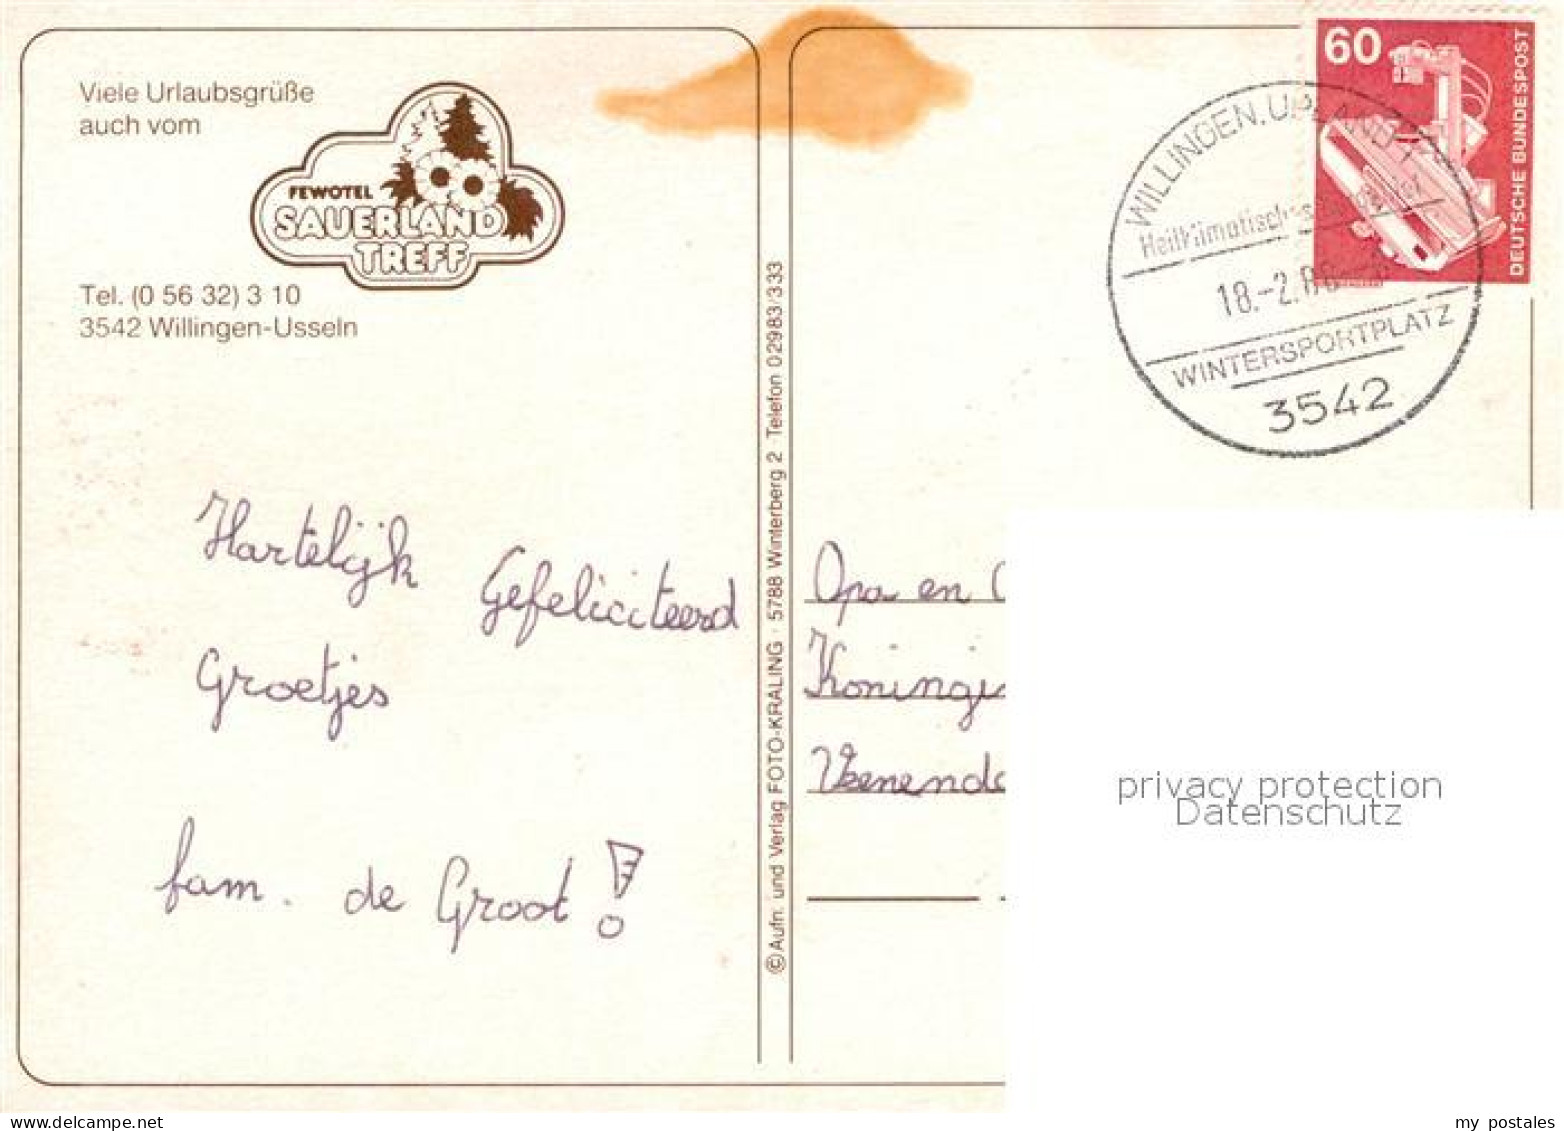 Viele Urlaubsgrüße
auch vom
FEWOTEL
SAUERLAND
TREFF
Tel. (0 56 32) 3 10
3542 Willingen-Usseln
Hartelijk Gefeliciteerd
Groetjes
fam. de Groot!
© Aufn. und Verlag FOTO-KRALING · 5788 Winterberg 2 · Telefon 02983/333
60
DEUTSCHE BUNDESPOST
WILLINGEN, UPLAND
18.-2.
WINTERSPORTPLATZ
3542
Opa en
Koningi
Veenenda
privacy protection
Datenschutz
delcampe.net
my postales